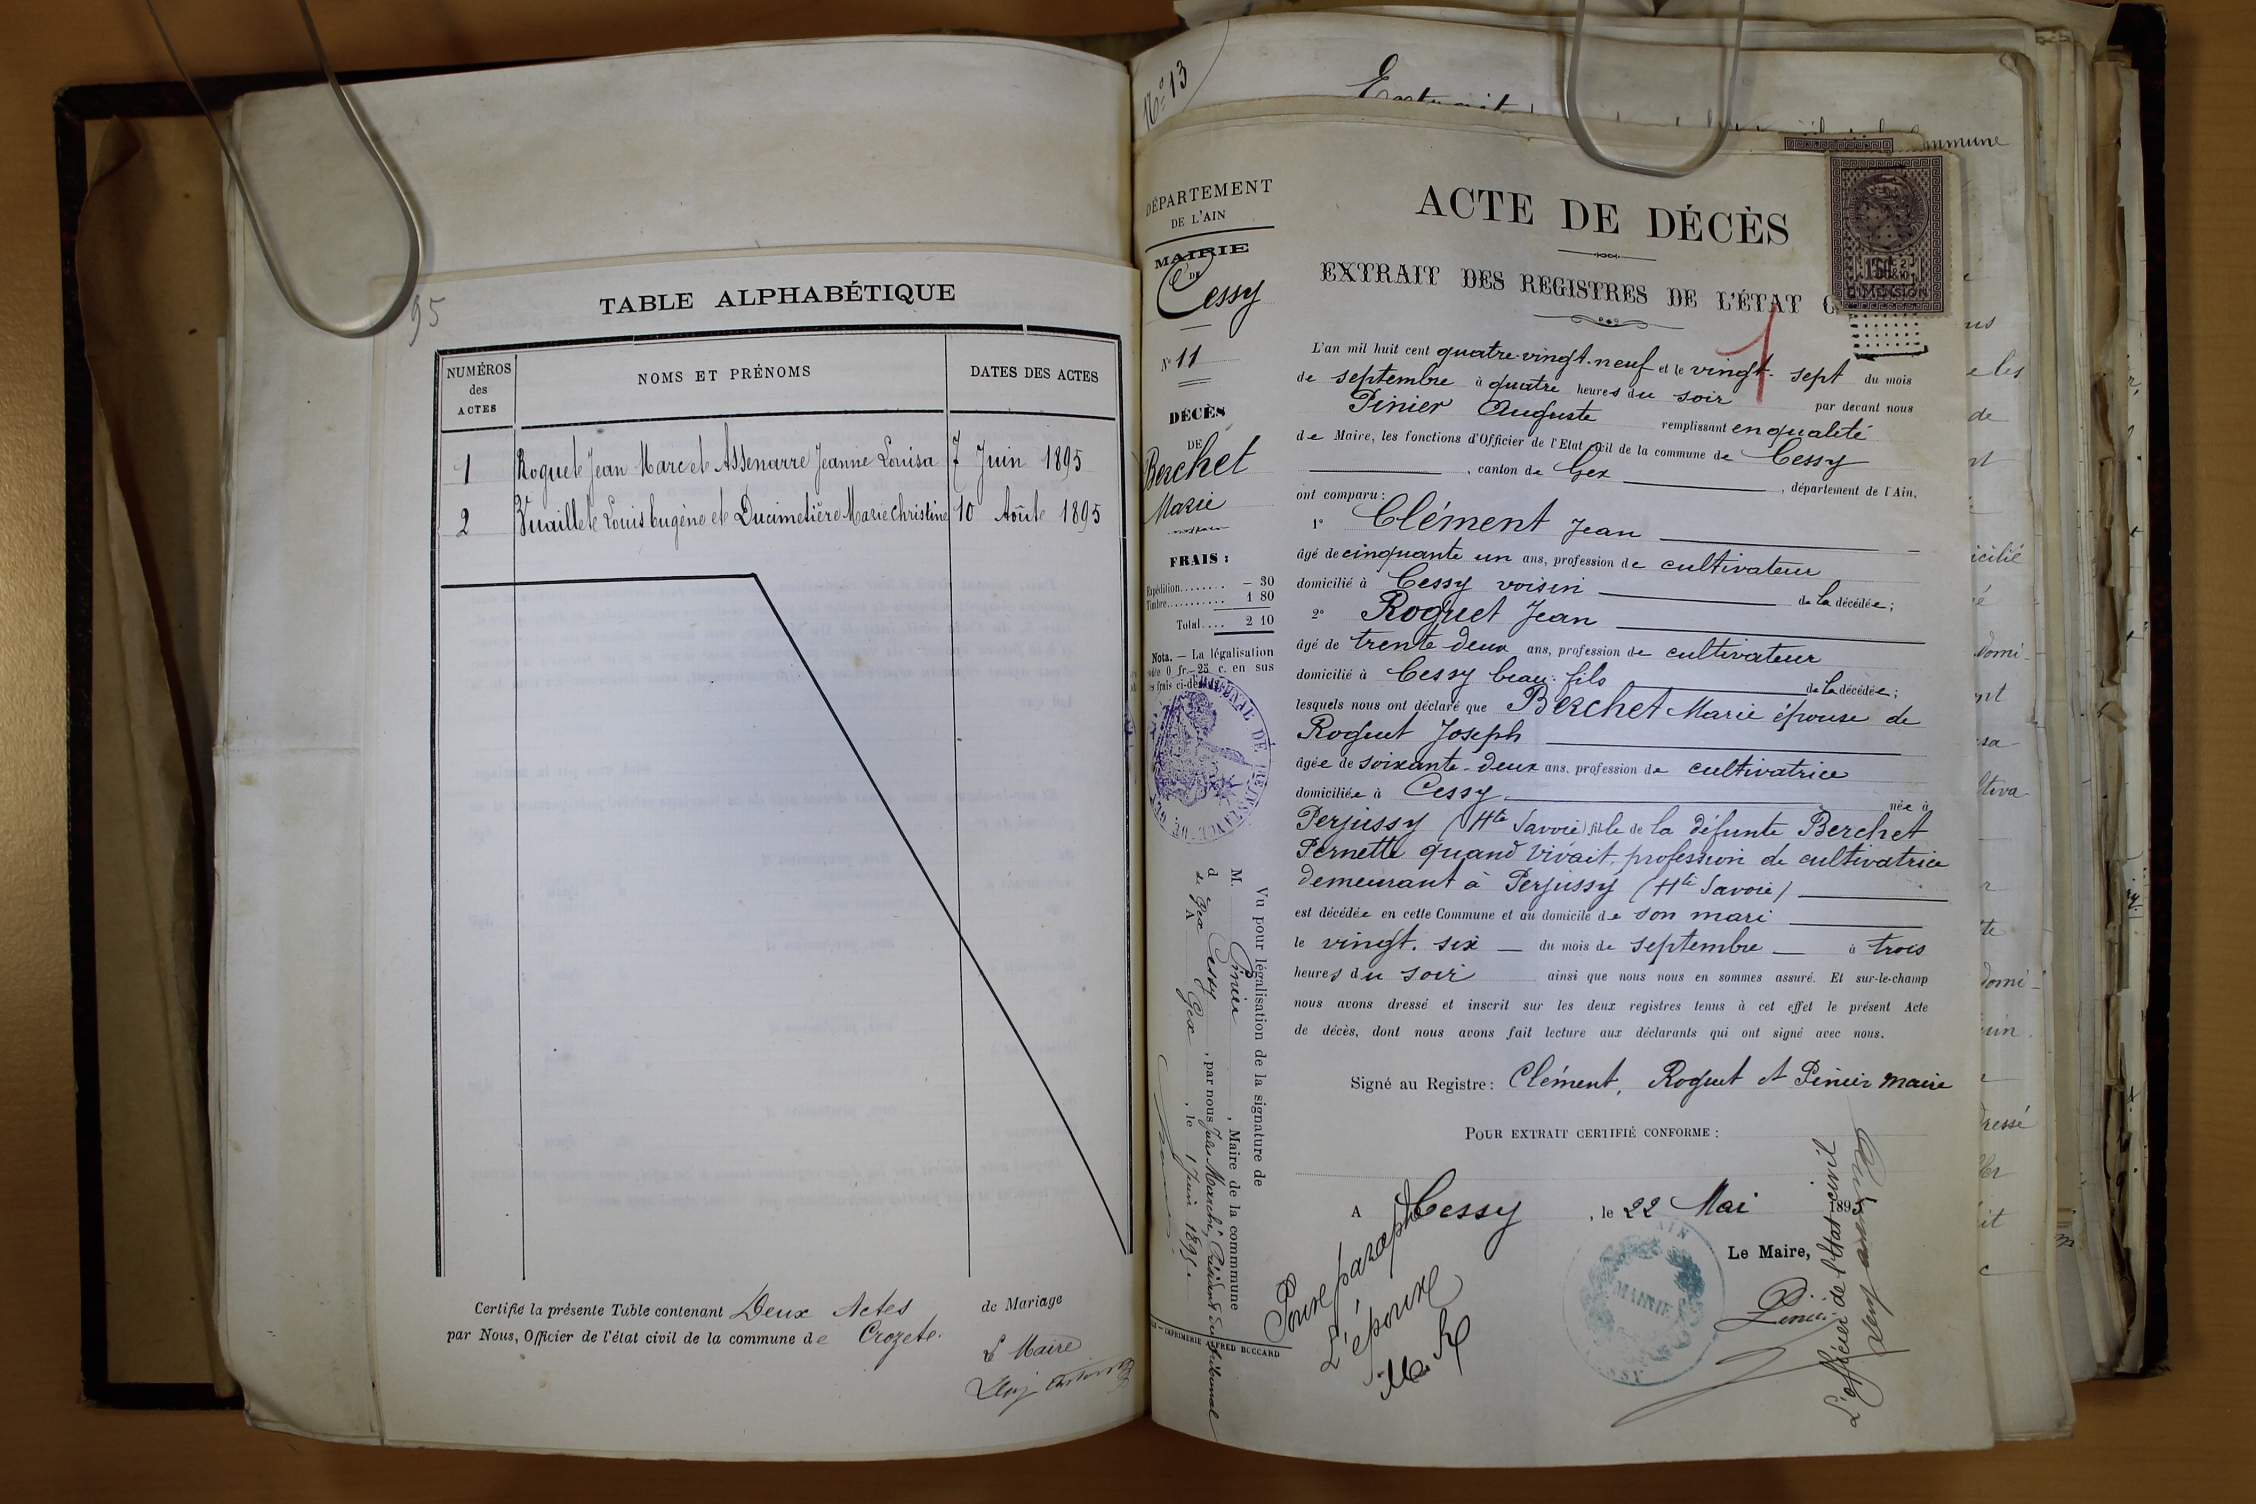 95
TABLE ALPHABÉTIQUE
NUMÉROS
des
ACTES
NOMS ET PRÉNOMS
DATES DES ACTES
1 Roguet Jean Marc et Assenarre Jeanne Louisa 7 Juin 1895
2 Vuaillet Louis Eugène et Ducimetière Marie Christine 10 Août 1895
Certifie la présente Table contenant Deux Actes de Mariage
par Nous, Officier de l'état civil de la commune de Crozet.
Le Maire
N° 13
Extrait
commune
DÉPARTEMENT
DE L'AIN
MAIRIE
DE
Cessy
N° 11
DÉCÈS
DE
Berchet
Marie
FRAIS :
Expédition........ – 30
Timbre.......... 1 80
Total.... 2 10
Nota. — La légalisation
coûte 0 fr. 25 c. en sus
les frais ci-dessus
TRIBUNAL DE 1RE INSTANCE DE GEX
Vu pour légalisation de la signature de
M. Pinier, Maire de la commune
d Cessy, par nous Jules Marchi, Président du Tribunal
de Gex
A Gex, le 1 Juin 1895.
IMPRIMERIE ALFRED BOCCARD
ACTE DE DÉCÈS
EXTRAIT DES REGISTRES DE L'ÉTAT C
DIMENSION
1
L'an mil huit cent quatre-vingt-neuf et le vingt-sept du mois
de septembre à quatre heures du soir par devant nous
Pinier Auguste remplissant en qualité
de Maire, les fonctions d'Officier de l'Etat civil de la commune de Cessy
, canton de Gex, département de l'Ain,
ont comparu :
1° Clément Jean
âgé de cinquante un ans, profession de cultivateur
domicilié à Cessy voisin de la décédée ;
2° Roguet Jean
âgé de trente-deux ans, profession de cultivateur
domicilié à Cessy beau-fils de la décédée ;
lesquels nous ont déclaré que Berchet Marie épouse de
Roguet Joseph
âgée de soixante-deux ans, profession de cultivatrice
domiciliée à Cessy née à
Perjussy (Hte Savoie) fille de la défunte Berchet
Pernette quand vivait, profession de cultivatrice
demeurant à Perjussy (Hte Savoie)
est décédée en cette Commune et au domicile de son mari
le vingt-six du mois de septembre à trois
heures du soir ainsi que nous nous en sommes assuré. Et sur-le-champ
nous avons dressé et inscrit sur les deux registres tenus à cet effet le présent Acte
de décès, dont nous avons fait lecture aux déclarants qui ont signé avec nous.
Signé au Registre : Clément, Roguet et Pinier maire
POUR EXTRAIT CERTIFIÉ CONFORME :
A Cessy, le 22 Mai 1895
Le Maire,
Pinier
MAIRIE
AIN
Pour paraphe
L'époux
M. R
L'officier de l'état civil